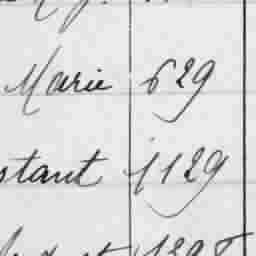 Marie 629
stant 1129